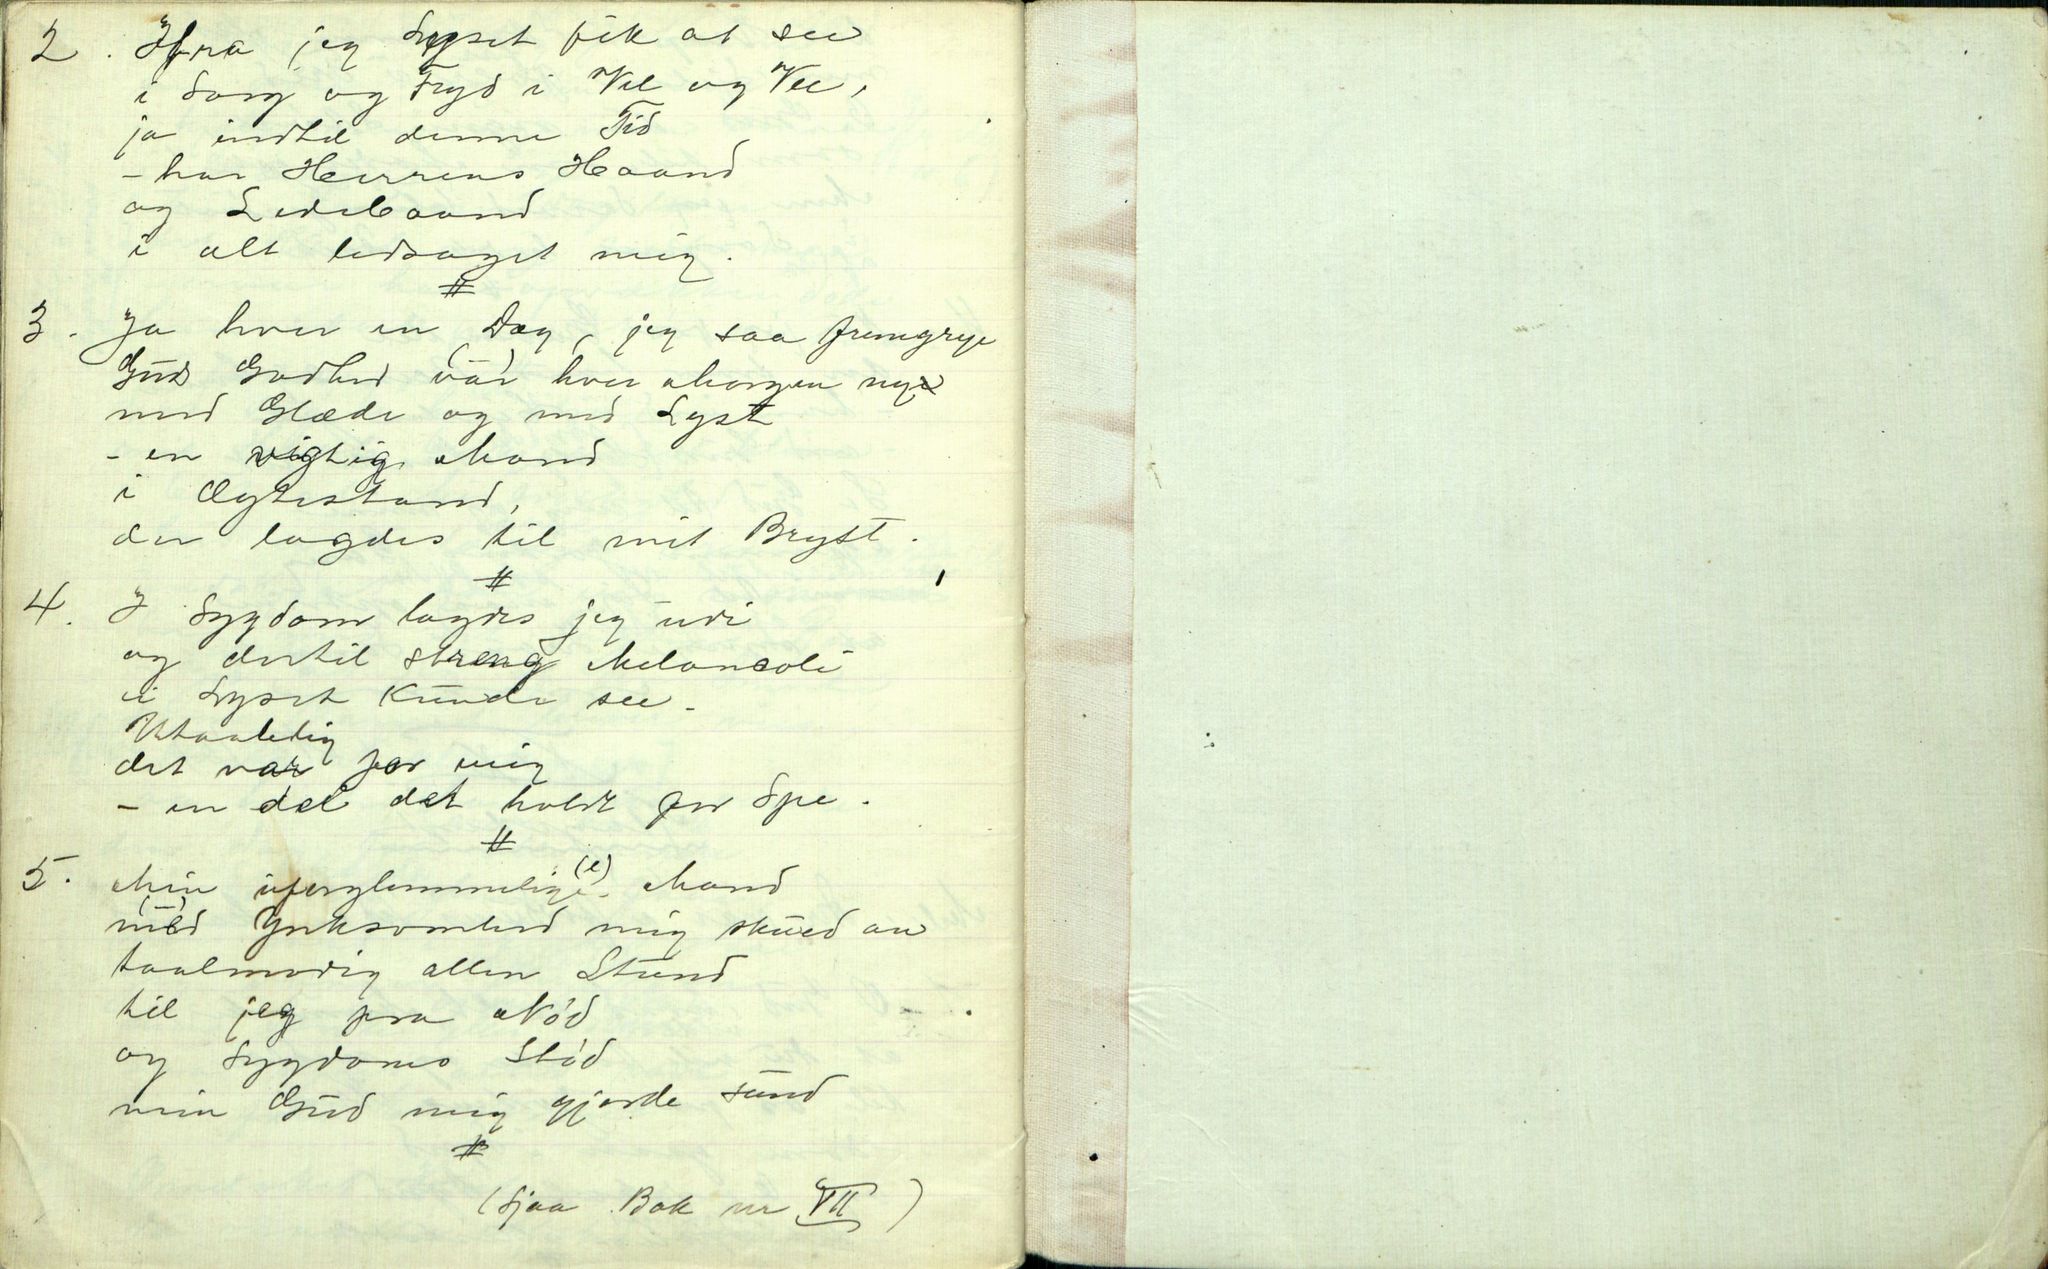 2. Ifra jeg Lyset fik at see
i Sorg og Fryd i Vel og Vee,
ja indtil denne Tid
- har Herrens Haand
og Ledebaand
i alt ledsaget mig.
#
3. Ja hver en Dag, jeg saa fremgrye
Guds Godhed (var) hver Morgen nye
med Glæde og med Lyst
- en vigtig Mand
i Ægtestand,
der lagdes til mit Bryst.
#
4. I Sygdom lagdes jeg udi
og dertil streng Melancoli
ei Lyset kunde see.
Utaalelig
det var for mig
- en del det holdt for Spe.
#
5. Min uforglemmelige (e) Mand
med Ynksomhed mig skued an
taalmodig allen Stund
til jeg fra Nød
og Sygdoms Stød
min Gud mig gjorde sund
#
(Sjaa Bok nr VII)